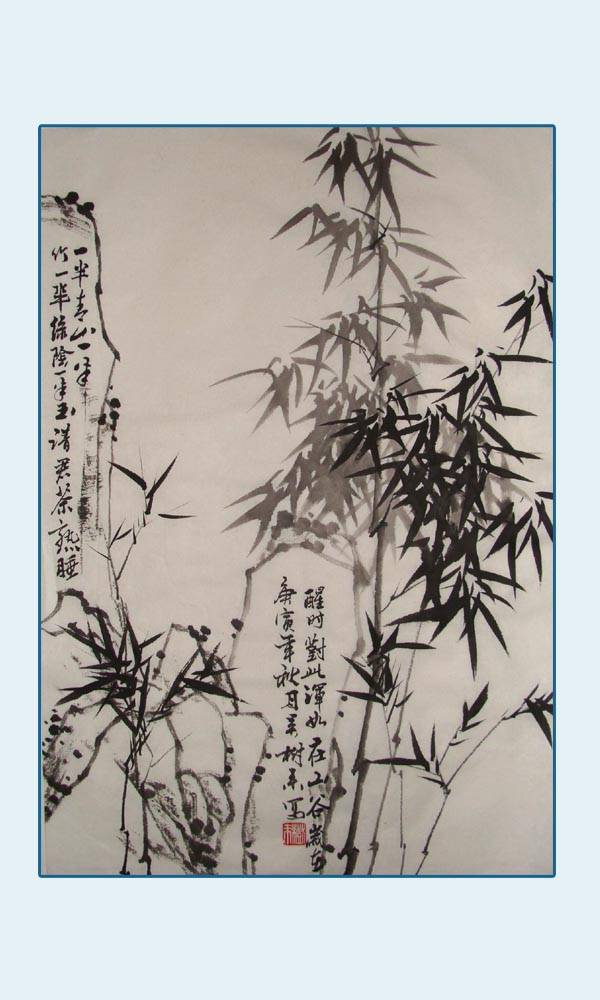 一半青山一半
竹一半綠陰一半玉請君茶熟睡
醒时對此渾如在山谷歲在
庚寅年秋月樹寫